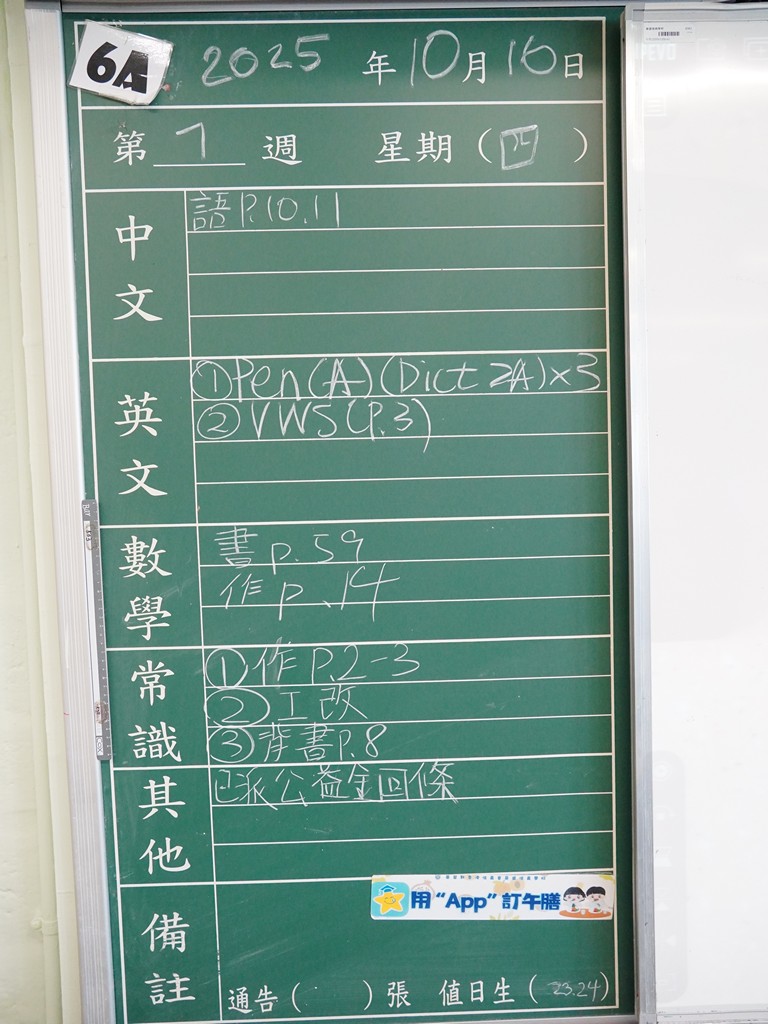 6A
2025 年 10 月 16 日
第 7 週 星期 ( 四 )
中文
語 P.10.11
英文
① Pen(A) (Dict 2A)×3
② VWS (P.3)
數學
書 p.59
作 p.14
常識
① 作 P.2-3
② 工改
③ 背書 P.8
其他
已派公益金回條
備註
用“App”訂午膳
通告 ( ) 張 值日生 ( 23.24 )